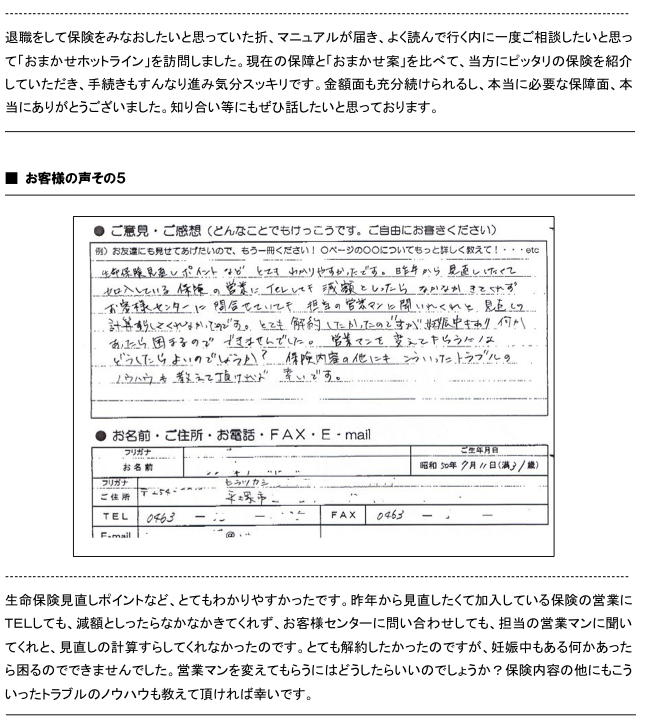 退職をして保険をみなおしたいと思っていた折、マニュアルが届き、よく読んで行く内に一度ご相談したいと思っ
て「おまかせホットライン」を訪問しました。現在の保障と「おまかせ案」を比べて、当方にピッタリの保険を紹介
していただき、手続きもすんなり進み気分スッキリです。金額面も充分続けられるし、本当に必要な保障面、本
当にありがとうございました。知り合い等にもぜひ話したいと思っております。
■ お客様の声その5
● ご意見・ご感想（どんなことでもけっこうです。ご自由にお書きください）
例）お友達にも見せてあげたいので、もう一冊ください！ ○ページの○○についてもっと詳しく教えて！・・・etc
生命保険見直しポイントなど とても わかりやすかったです。昨年から 見直したくて
加入している 保険の営業に TELしても 減額としったら なかなかきてくれず
お客様センターに 問合せていても 担当の営業マンに聞いてくれと 見直しの
計算すらしてくれなかったのです。とても 解約したかったのですが 妊娠中もあり 何か
あったら 困るので できませんでした。 営業マンを 変えてもらうには
どうしたらよいのでしょうか？ 保険内容の他にも こういったトラブルの
ノウハウも 教えて頂ければ 幸いです。
● お名前・ご住所・お電話・FAX・E-mail
フリガナ ご生年月日
お名前 昭和 50年 7月 11日(満31歳)
フリガナ ヒラツカシ
ご住所 〒254- 平塚市
TEL 0463 － － FAX 0463 － －
E-mail @
生命保険見直しポイントなど、とてもわかりやすかったです。昨年から見直したくて加入している保険の営業に
TELLしても、減額としったらなかなかきてくれず、お客様センターに問い合わせしても、担当の営業マンに聞い
てくれと、見直しの計算すらしてくれなかったのです。とても解約したかったのですが、妊娠中もある何かあった
ら困るのでできませんでした。営業マンを変えてもらうにはどうしたらいいのでしょうか？保険内容の他にもこう
いったトラブルのノウハウも教えて頂ければ幸いです。